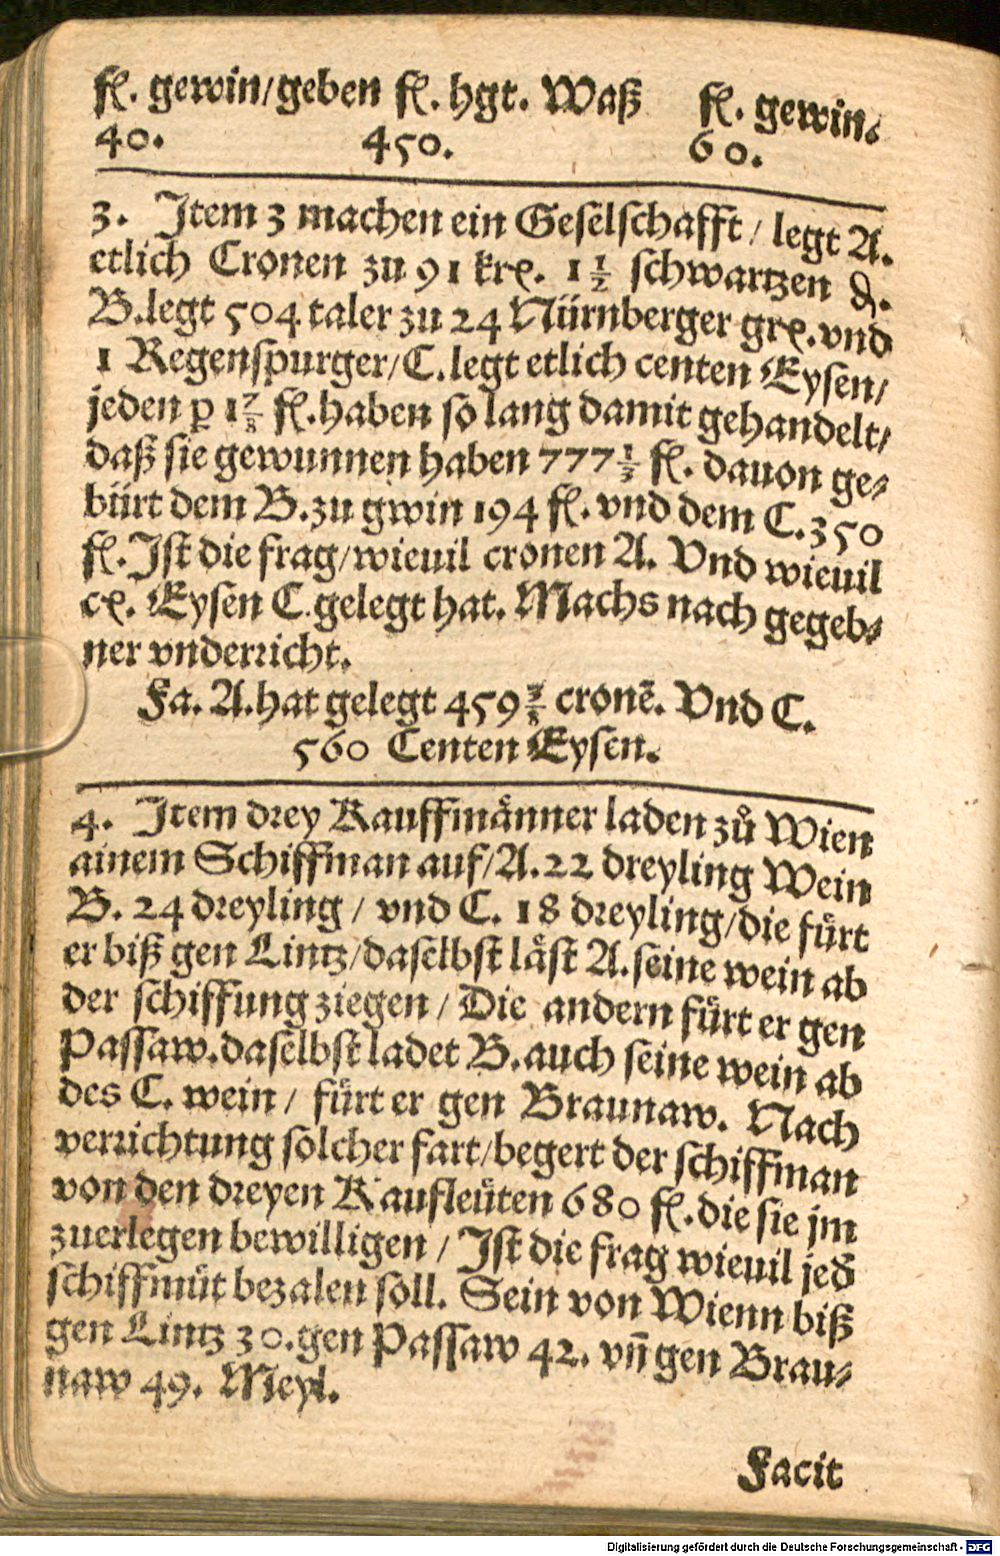 fl. gewin/geben fl. hgt. Waß fl. gewin.
40. 450. 60.
3. Item 3 machen ein Geselschafft / legt A.
etlich Cronen zu 91 krx. 1 1/2 schwartzen ₰.
B.legt 504 taler zu 24 Nürnberger grx. vnd
1 Regenspurger/C.legt etlich centen Eysen/
jeden p 1 7/8 fl.haben so lang damit gehandelt/
daß sie gewunnen haben 777 1/3 fl. dauon ge-
bürt dem B.zu gwin 194 fl. vnd dem C.350
fl.Ist die frag/wieuil cronen A. Vnd wieuil
cx. Eysen C.gelegt hat. Machs nach gegeb-
ner vnderricht.
Fa. A.hat gelegt 459 cronē. Vnd C.
560 Centen Eysen.
4. Item drey Kauffmåñner laden zů Wien
ainem Schiffman auf/A.22 dreyling Wein
B. 24 dreyling / vnd C. 18 dreyling/die fuͤrt
er biß gen Lintz/daselbst laͤst A.seine wein ab
der schiffung ziegen / Die andern fuͤrt er gen
Passaw.daselbst ladet B.auch seine wein ab
des C. wein / fuͤrt er gen Braunaw. Nach
verrichtung solcher fart/begert der schiffman
von den dreyen Kaufleuͤten 680 fl.die sie jm
zuerlegen bewilligen / Ist die frag wieuil jed
schiffmuͤt bezalen soll. Sein von Wienn biß
gen Lintz 30.gen Passaw 42. vñ gen Brau-
naw 49. Meyl.
Facit
Digitalisierung gefördert durch die Deutsche Forschungsgemeinschaft - DFG